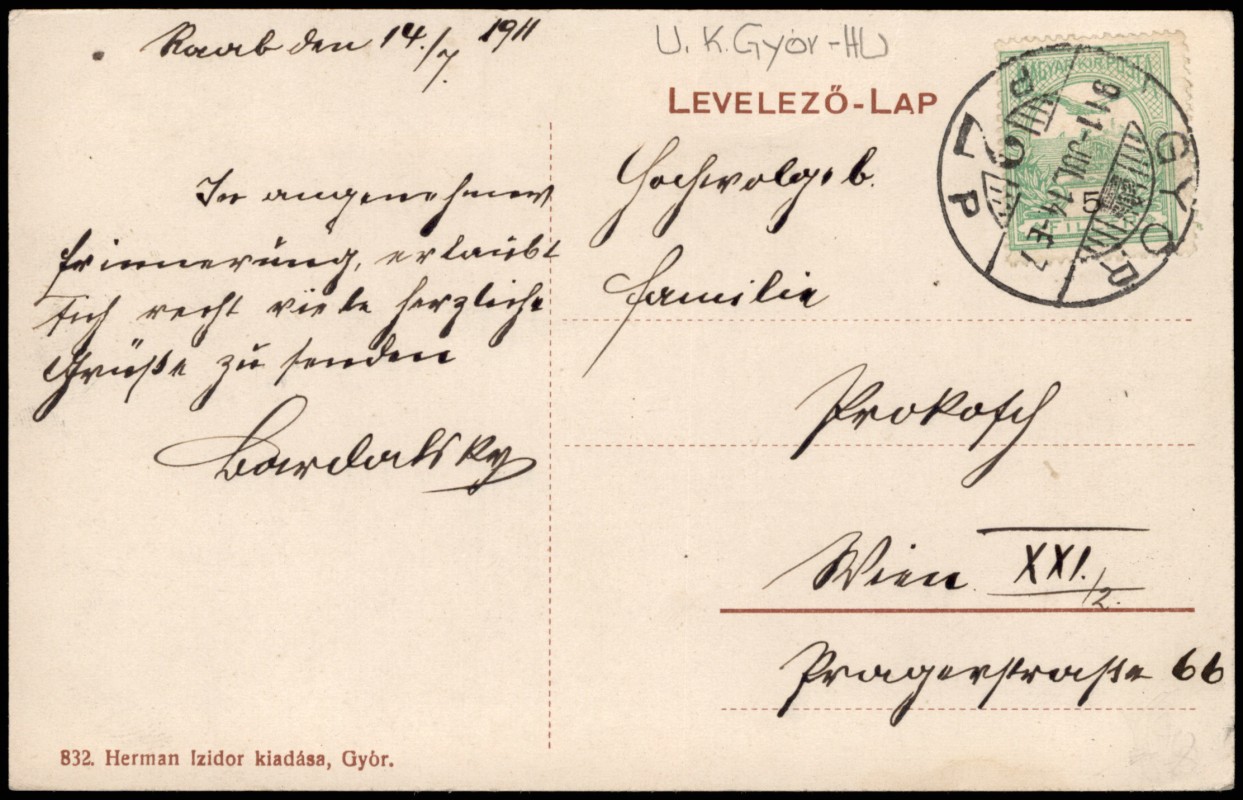 Raab den 14./7. 1911
U. K. Győr-HU
LEVELEZŐ-LAP
MAGYAR KIR. POSTA
5
GYŐR
911 JUL 14
In angenehmer
Erinnerung, erlaubt
sich recht viele herzliche
Grüße zu senden
Bardalsky
Hochwolgeb.
Familie
Prokosch
Wien XXI./2.
Pragerstraße 66
832. Herman Izidor kiadása, Győr.